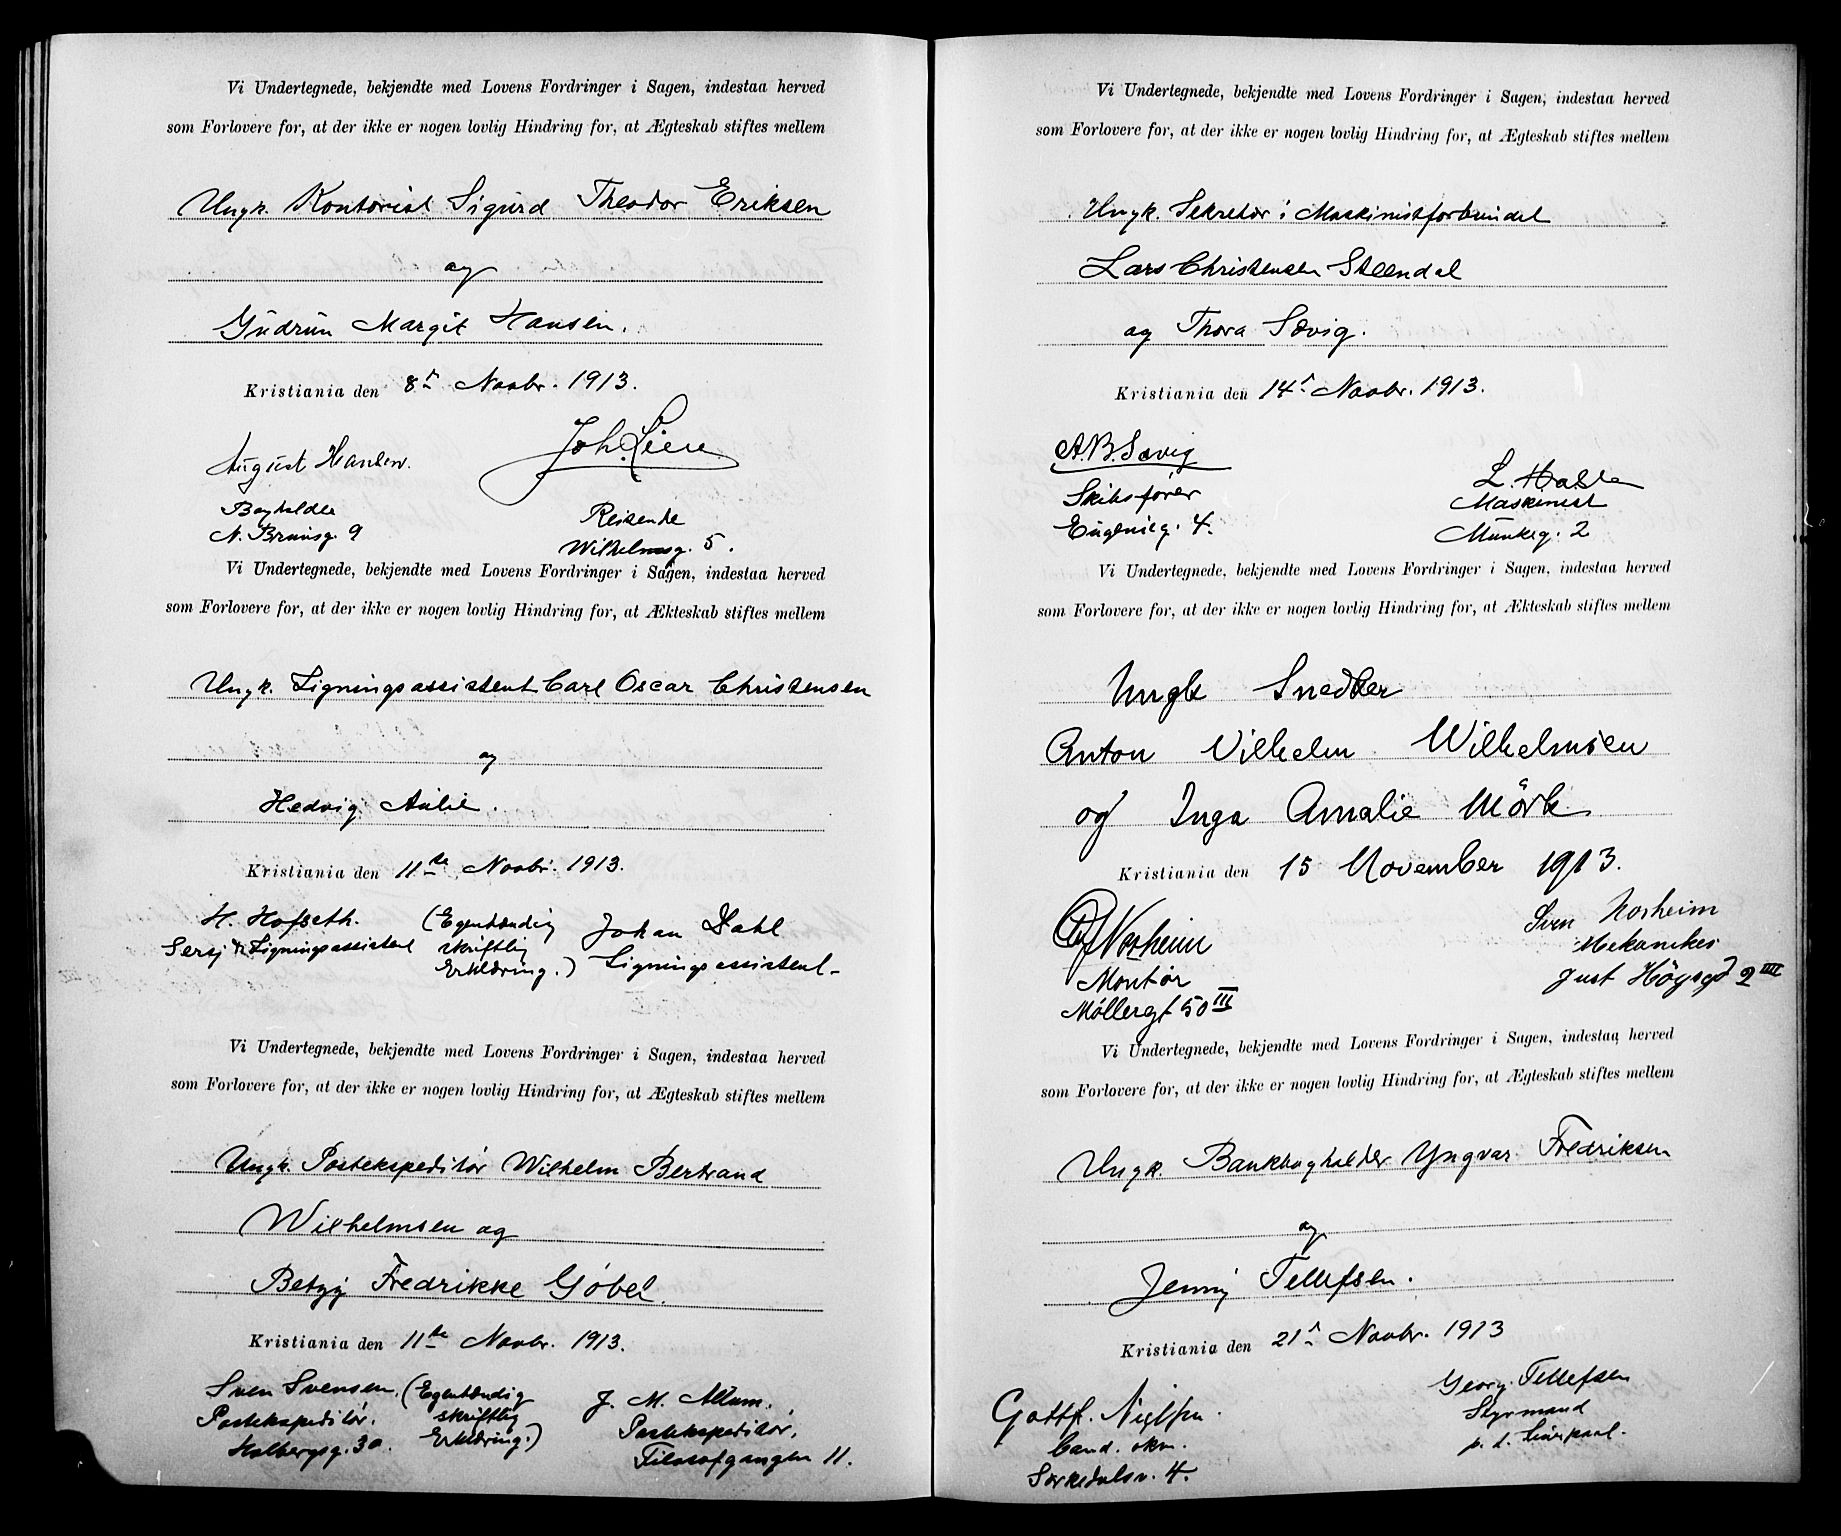 Vi Undertegnede, bekjendte med Lovens Fordringer i Sagen, indestaa herved
som Forlovere for, at der ikke er nogen lovlig Hindring for, at Ægteskab stiftes mellem
Ungk. Kontorist Sigurd Theodor Eriksen
og
Gudrun Margit Hansen.
Kristiania den 8de Novbr. 1913.
August Hansen. Joh. Liere
Bogholder Reisende
N. Brunsg. 9 Wilhelmsg. 5.
Vi Undertegnede, bekjendte med Lovens Fordringer i Sagen, indestaa herved
som Forlovere for, at der ikke er nogen lovlig Hindring for, at Ækteskab stiftes mellem
Ungk. Ligningsassistent Carl Oscar Christensen
og
Hedvig Aulie.
Kristiania den 11te Novbr. 1913.
H. Hofseth. (Egenhændig Johan Dahl
Sersj & Ligningsassistent skriftlig Ligningsassistent
Erklæring.)
Vi Undertegnede, bekjendte med Lovens Fordringer i Sagen, indestaa herved
som Forlovere for, at der ikke er nogen lovlig Hindring for, at Ægteskab stiftes mellem
Ungk. Postekspeditør Wilhelm Bertrand
Wilhelmsen og
Betzy Fredrikke Gøbel.
Kristiania den 11te Novbr. 1913.
Sven Svensen, (Egenhændig J. M. Allum.
Postekspeditør. skriftlig Postekspeditør,
Holbergsg. 30. Erklæring.) Filosofgangen 11.
Vi Undertegnede, bekjendte med Lovens Fordringer i Sagen, indestaa herved
som Forlovere for, at der ikke er nogen lovlig Hindring for, at Ægteskab stiftes mellem
Ungk. Sekretær i Maskinistforbundet
Lars Christensen Steendal
og Thora Sævig.
Kristiania den 14de Novbr. 1913.
A.B. Sævig L. Holte
Skibsfører Maskinist
Eugenieg. 4. Munkeg. 2
Vi Undertegnede, bekjendte med Lovens Fordringer i Sagen, indestaa herved
som Forlovere for, at der ikke er nogen lovlig Hindring for, at Ækteskab stiftes mellem
Ungk Snedker
Anton Vilhelm Wilhelmsen
og Inga Amalie Mörk
Kristiania den 15 November 1913.
Norheim Sven Norheim
Montör Mekaniker
Møllergt 50 III Just Högsgd 2 IIII
Vi Undertegnede, bekjendte med Lovens Fordringer i Sagen, indestaa herved
som Forlovere for, at der ikke er nogen lovlig Hindring for, at Ægteskab stiftes mellem
Ungk. Bankbogholder Yngvar Fredriksen
og
Jenny Tellefsen.
Kristiania den 21de Novbr. 1913
Gottfr. Nielsen. Georg Tellefsen
Cand. økon. Styrmand
Sørkedalsv. 4. p. t. Liverpool.